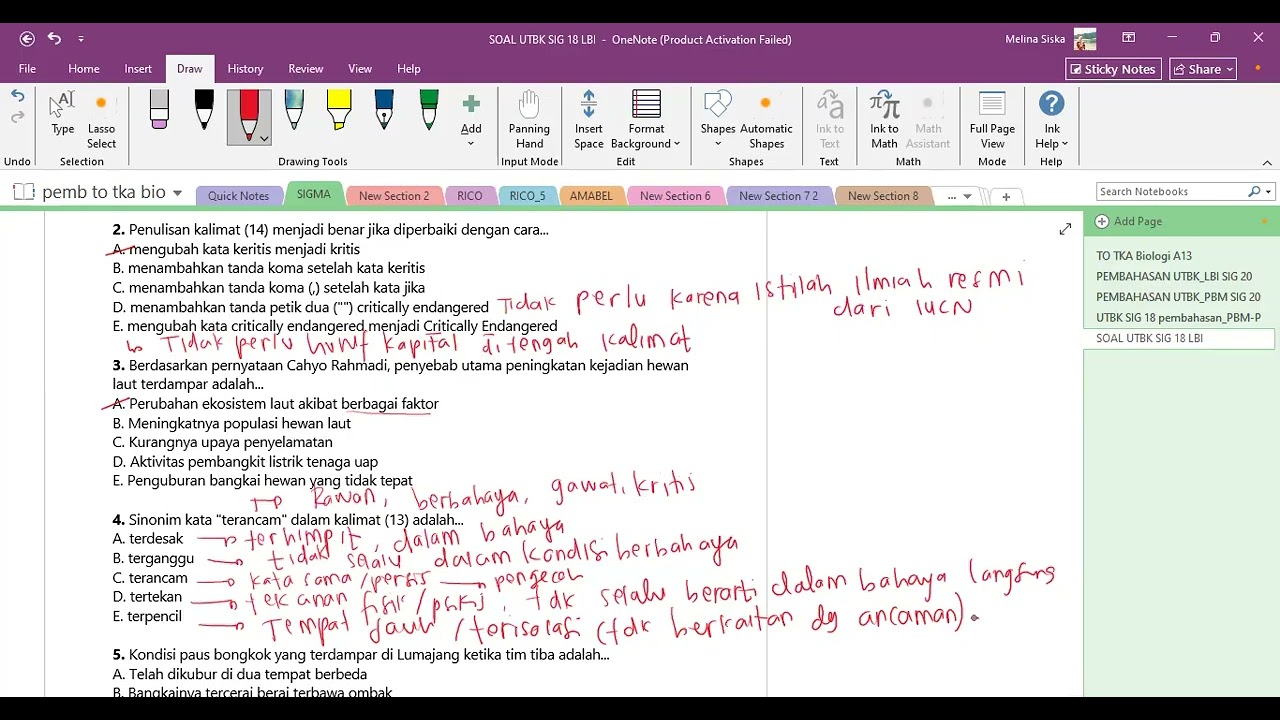 SOAL UTBK SIG 18 LBI - OneNote (Product Activation Failed)
Melina Siska
File Home Insert Draw History Review View Help
Sticky Notes Share
Type
Lasso Select
Add
Panning Hand
Insert Space
Format Background
Shapes
Automatic Shapes
Ink to Text
Ink to Math
Math Assistant
Full Page View
Ink Help
Undo Selection Drawing Tools Input Mode Edit Shapes Text Math Mode Help
pemb to tka bio Quick Notes SIGMA New Section 2 RICO RICO_5 AMABEL New Section 6 New Section 7 2 New Section 8 ... +
Search Notebooks
Add Page
TO TKA Biologi A13
PEMBAHASAN UTBK_LBI SIG 20
PEMBAHASAN UTBK_PBM SIG 20
UTBK SIG 18 pembahasan_PBM-P
SOAL UTBK SIG 18 LBI
2. Penulisan kalimat (14) menjadi benar jika diperbaiki dengan cara...
A. mengubah kata keritis menjadi kritis
B. menambahkan tanda koma setelah kata keritis
C. menambahkan tanda koma (,) setelah kata jika
D. menambahkan tanda petik dua ("") critically endangered Tidak perlu karena istilah ilmiah resmi
dari IUCN
E. mengubah kata critically endangered menjadi Critically Endangered
Tidak perlu huruf kapital ditengah kalimat
3. Berdasarkan pernyataan Cahyo Rahmadi, penyebab utama peningkatan kejadian hewan
laut terdampar adalah...
A. Perubahan ekosistem laut akibat berbagai faktor
B. Meningkatnya populasi hewan laut
C. Kurangnya upaya penyelamatan
D. Aktivitas pembangkit listrik tenaga uap
E. Penguburan bangkai hewan yang tidak tepat
Rawan, berbahaya, gawat, kritis
4. Sinonim kata "terancam" dalam kalimat (13) adalah...
A. terdesak terhimpit, dalam bahaya
B. terganggu tidak selalu dalam kondisi berbahaya
C. terancam kata sama/persis pengecoh
D. tertekan tekanan fisik/psikis, tdk selalu berarti dalam bahaya langsung
E. terpencil Tempat jauh/terisolasi (tdk berkaitan dg ancaman)
5. Kondisi paus bongkok yang terdampar di Lumajang ketika tim tiba adalah...
A. Telah dikubur di dua tempat berbeda
B. Bangkainya tercerai berai terbawa ombak